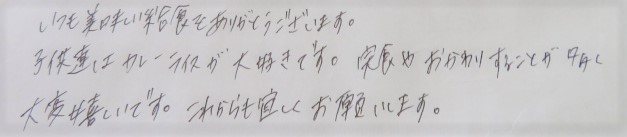 いつも美味しい給食をありがとうございます。
子供達はカレーライスが大好きです。完食やおかわりすることが多く
大変嬉しいです。これからも宜しくお願いします。